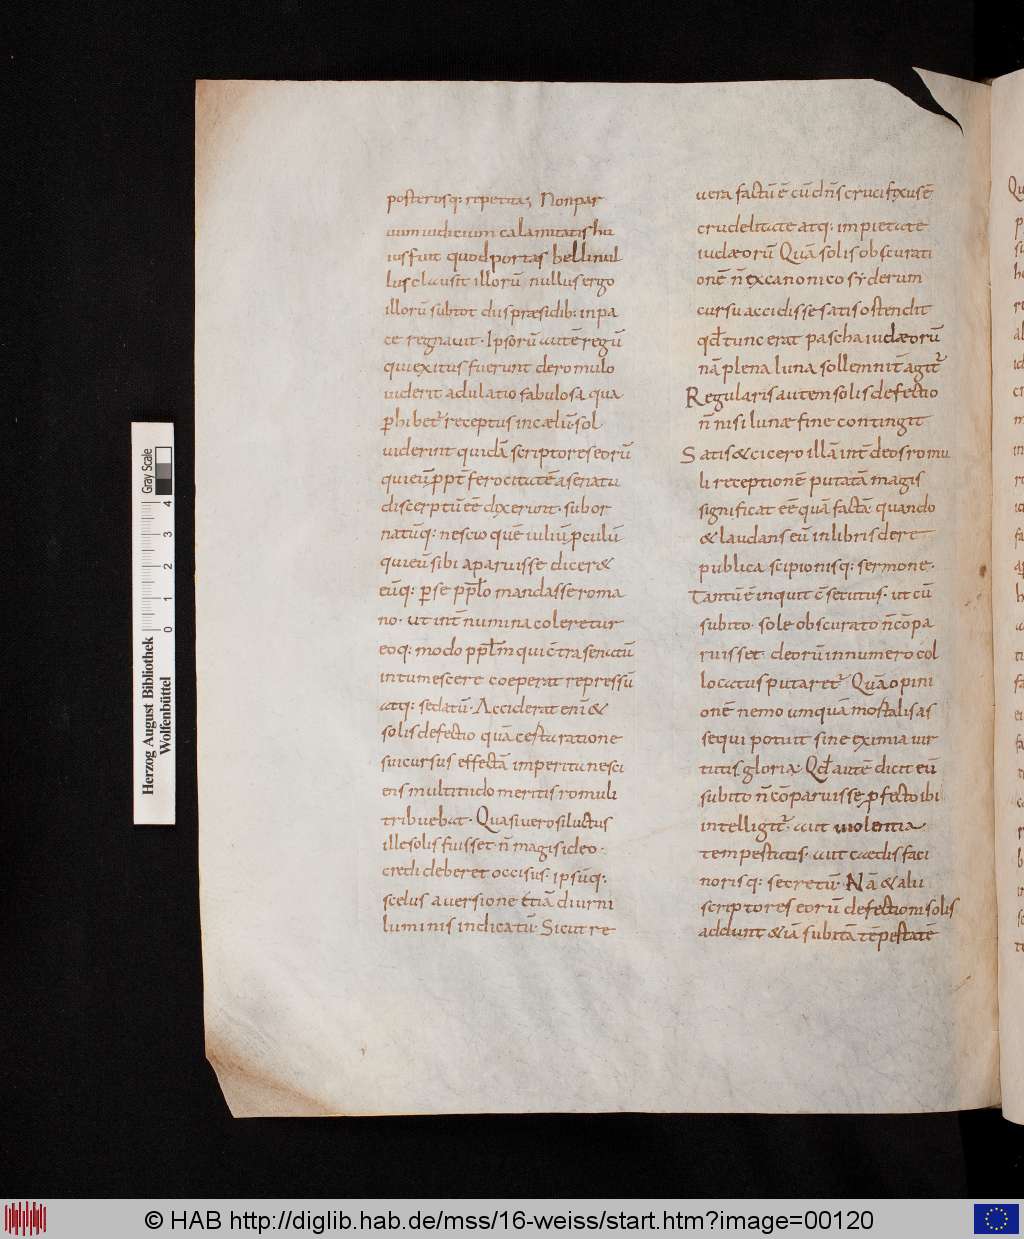 posterosq: repetitas. Nonpar
uum iudicium calamitatis hu
ius fuit quod portas belli nul
lus clausit illorū nullus ergo
illorū sub tot diis præsidib: in pa
ce regnauit. Ipsorū autē regū
qui exitus fuerunt de romulo
uiderit adulatio fabulosa qua
phibet receptus in cælū. sol
uiderint quidā scriptores eorū
qui eū ppt ferocitatē a senatu
discerptū eē dixerunt. subor
natūq: nescio quē iuliū pculū
qui eū sibi aparuisse diceret
eūq: p se pplo mandasse roma
no. ut int numina coleretur
eoq: modo pplm qui c̄tra senatū
intumescere coeperat repressū
atq: sedatū. Acciderat enī &
solis defectio quā certa ratione
sui cursus effectā imperita nesci
ens multitudo meritis romuli
tribuebat. Quasi uero si luctus
ille solis fuisset. ñ magis ideo.
credi deberet occisus. ipsūq:
scelus auersione etiā diurni
luminis indicatū. Sicut re
uera factū ē cū dn̄s crucifixus ē
crudelitate atq: impietate
iudæorū Quā solis obscurati
onē ñ ex canonico syderum
cursu accidisse satis ostendit
qđ tunc erat pascha iudæorū
nā plena luna sollemnit agit
Regularis autem solis defectio
ñ nisi lunæ fine contingit
Satis & cicero illā int deos romu
li receptionē putatā magis
significat eē quā factā. quando
& laudans eū in libris de re
publica scipionisq: sermone.
Tantū ē inquit c̄secutus. ut cū
subito. sole obscurato ñ cōpa
ruisset. deorū in numero col
locatus putaret Quā opini
onē nemo umquā mortalis as
sequi potuit sine eximia uir
tutis gloria. Qđ autē dicit eū
subito ñ cōparuisse pfecto ibi
intelligit. aut uiolentia
tempestatis. aut caedis faci
norisq: secretū. Nā & alii
scriptores eorū defectioni solis
addunt & iā subitā tēpestatē
Herzog August Bibliothek
Wolfenbüttel
0 1 2 3 4
Gray Scale
© HAB http://diglib.hab.de/mss/16-weiss/start.htm?image=00120